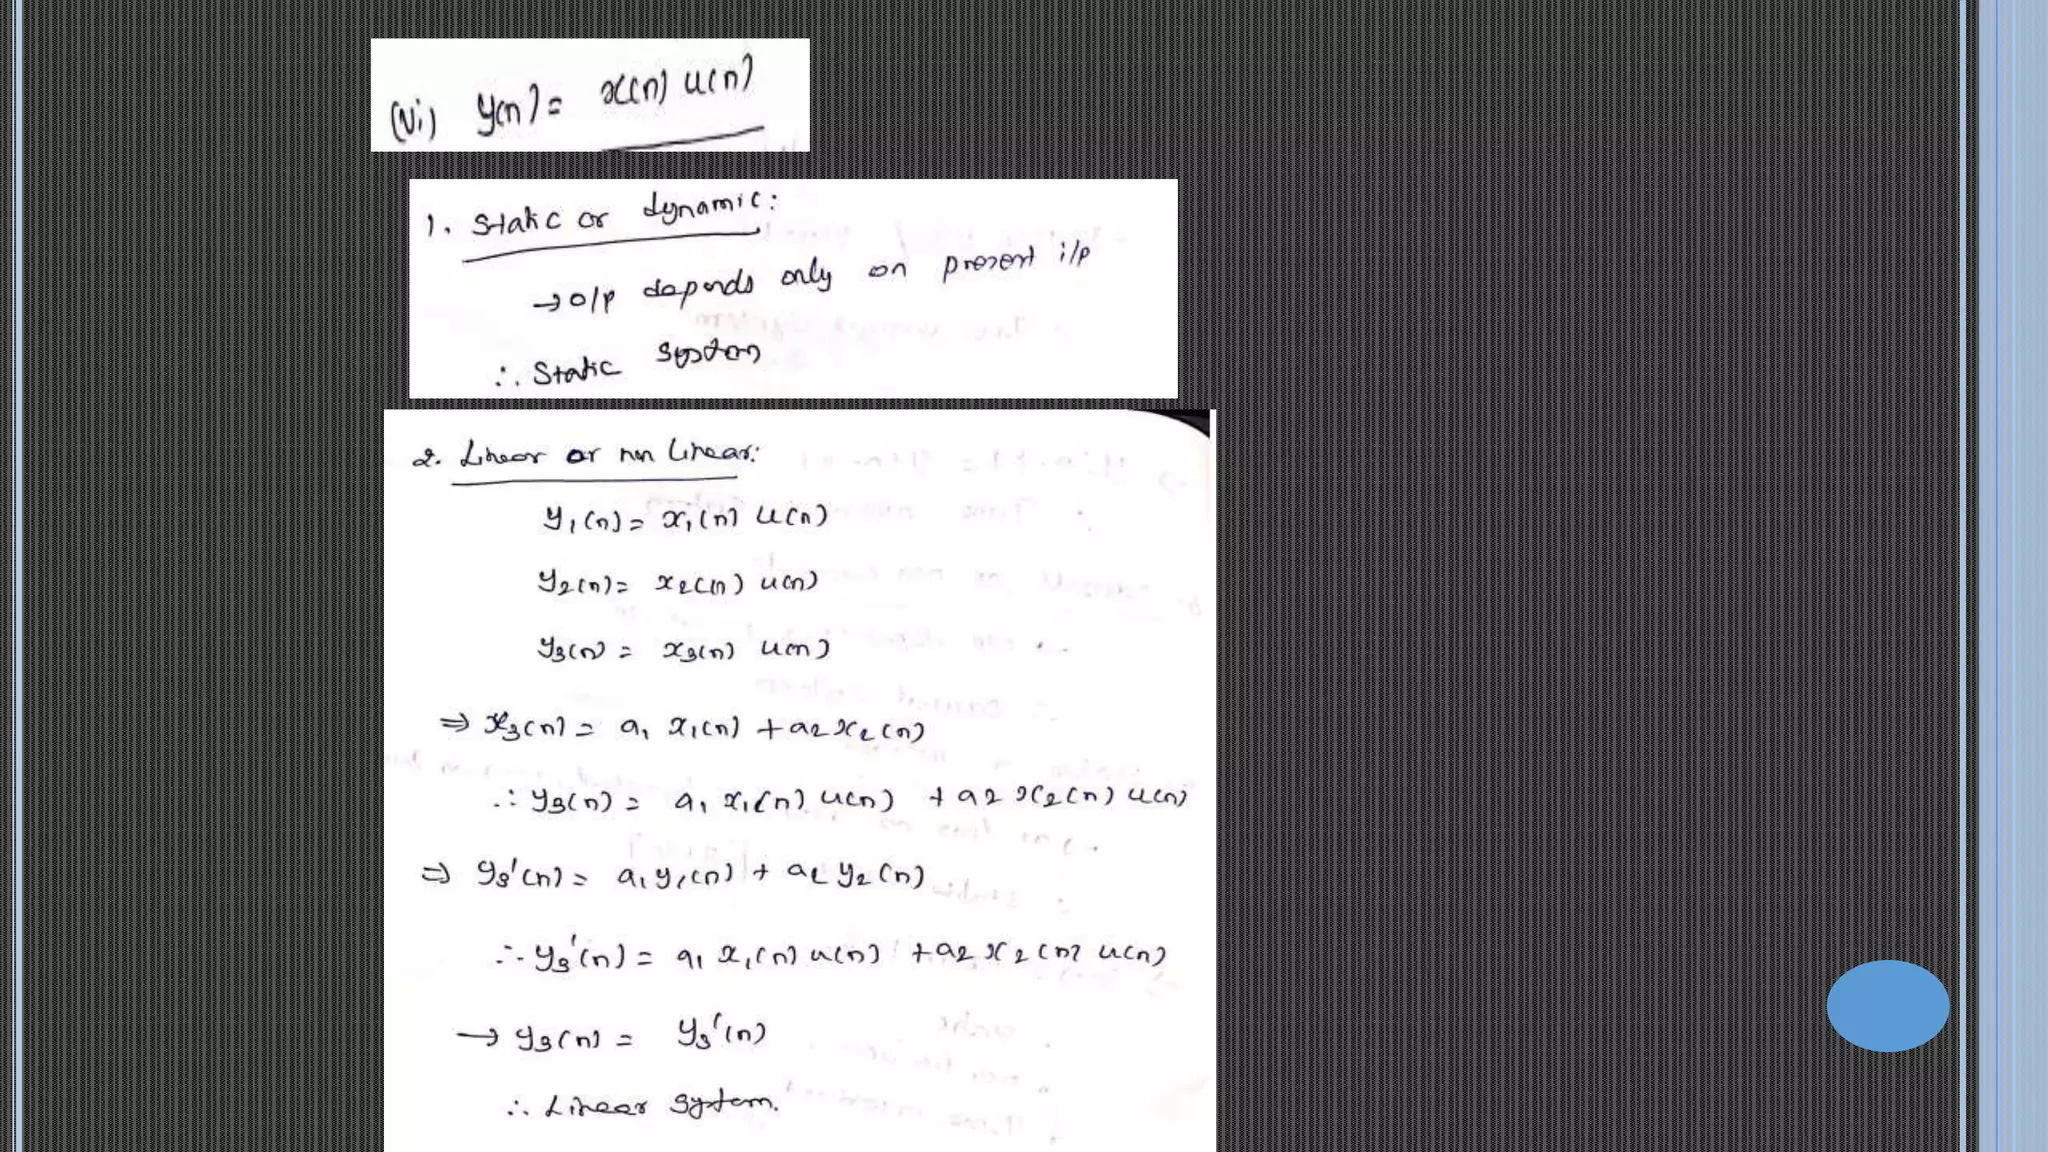 (vi) y(n) = x(n) u(n)
1. Static or dynamic:
→ o/p depends only on present i/p
∴ Static system
2. Linear or non linear:
y₁(n) = x₁(n) u(n)
y₂(n) = x₂(n) u(n)
y₃(n) = x₃(n) u(n)
⇒ x₃(n) = a₁ x₁(n) + a₂ x₂(n)
∴ y₃(n) = a₁ x₁(n) u(n) + a₂ x₂(n) u(n)
⇒ y₃'(n) = a₁ y₁(n) + a₂ y₂(n)
∴ y₃'(n) = a₁ x₁(n) u(n) + a₂ x₂(n) u(n)
→ y₃(n) = y₃'(n)
∴ Linear system.